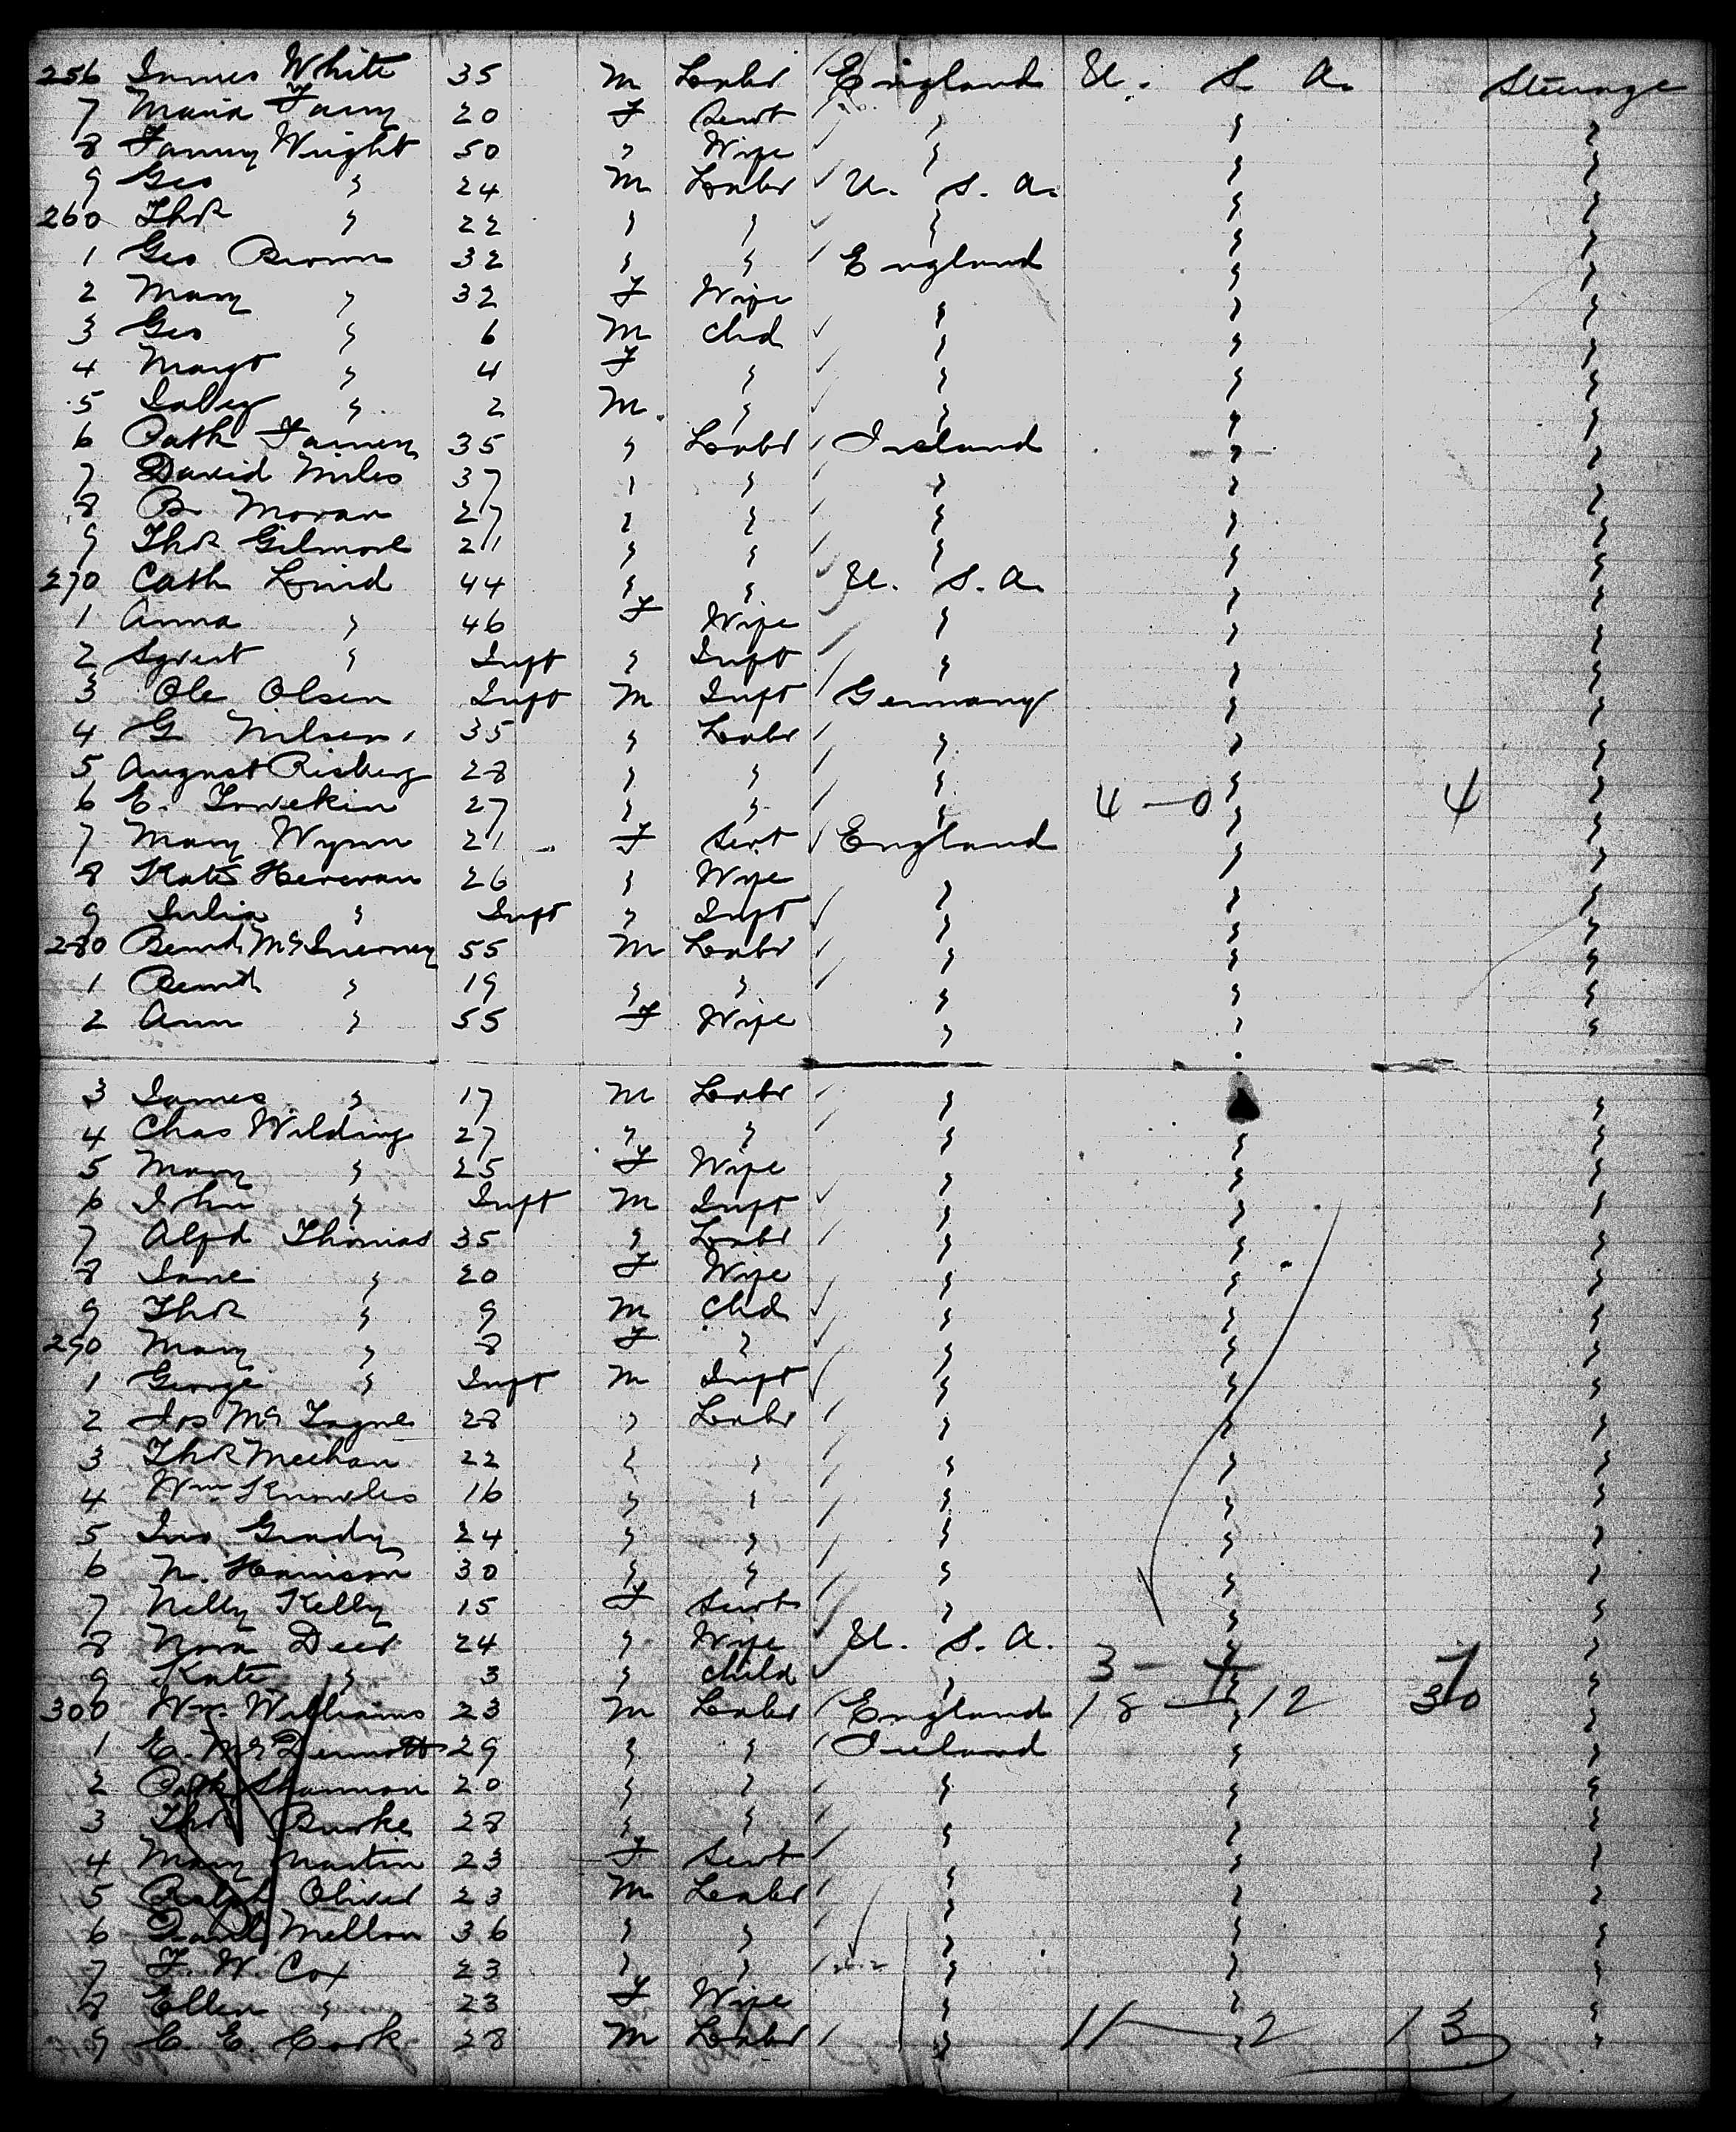 256 James White 35 M Labr England U. S. A. Steerage
7 Maria 20 F Servt " " "
8 Fanny Wright 50 " Wife " " "
9 Geo " 24 M Labr U. S. A. " "
260 Thos " 22 " " " " "
1 Geo Brown 32 " " England " "
2 Mary " 32 F Wife " " "
3 Geo " 6 M Chd " " "
4 Margt " 4 F " " " "
5 " 2 M. " " " "
6 Patk 35 " Labr Ireland " "
7 David Miles 37 " " " " "
8 B. Moran 27 " " " " "
9 Thos Gilmore 21 " " " " "
270 Cath 44 " " U. S. A. " "
1 Anna " 46 F Wife " " "
2 " Inft " Inft " " "
3 Ole Olsen Inft M Inft Germany " "
4 G Nilsen 35 " Labr " " "
5 August Risberg 28 " " " " "
6 E. 27 " " " 4 — 0 " 4 "
7 Mary Wynn 21 F Servt England " "
8 Kate 26 " Wife " " "
9 Julia " Inft " Inft " " "
280 Bernd McInerney 55 M Labr " " "
1 " 19 " " " " "
2 Ann " 55 F Wife " " "
3 James " 17 M Labr " "
4 Chas Wilding 27 " " " " "
5 Mary " 25 F Wife " " "
6 John " Inft M Inft " " "
7 Alfd Thomas 35 " Labr " " "
8 Jane " 20 F Wife " " "
9 Thos " 9 M Chd " " "
290 Mary " 8 F " " " "
1 George " Inft M Inft " " "
2 Jos 28 " Labr " " "
3 Thos Meehan 22 " " " " "
4 Wm Knowles 16 " " " " "
5 Jno Grady 24 " " " " "
6 N. Harrison 30 " " " " "
7 Nelly Kelly 15 F Servt " " "
8 Nora Deer 24 " Wife U. S. A. " "
9 Kate " 3 " Child " 3 — 4 7 "
300 Wm Williams 23 M Labr England 18 — 12 30 "
1 E. McDermott 29 " " Ireland " "
2 Patk Shannon 20 " " " " "
3 Thos Burke 28 " " " " "
4 Mary Martin 23 F Servt " " "
5 Ralph Oliver 23 M Labr " " "
6 Mellon 36 " " " " "
7 F. W. Cox 23 " " " " "
8 Ellen " 23 F Wife " " "
9 C. E. Cook 28 M Labr " 11 — 2 13 "